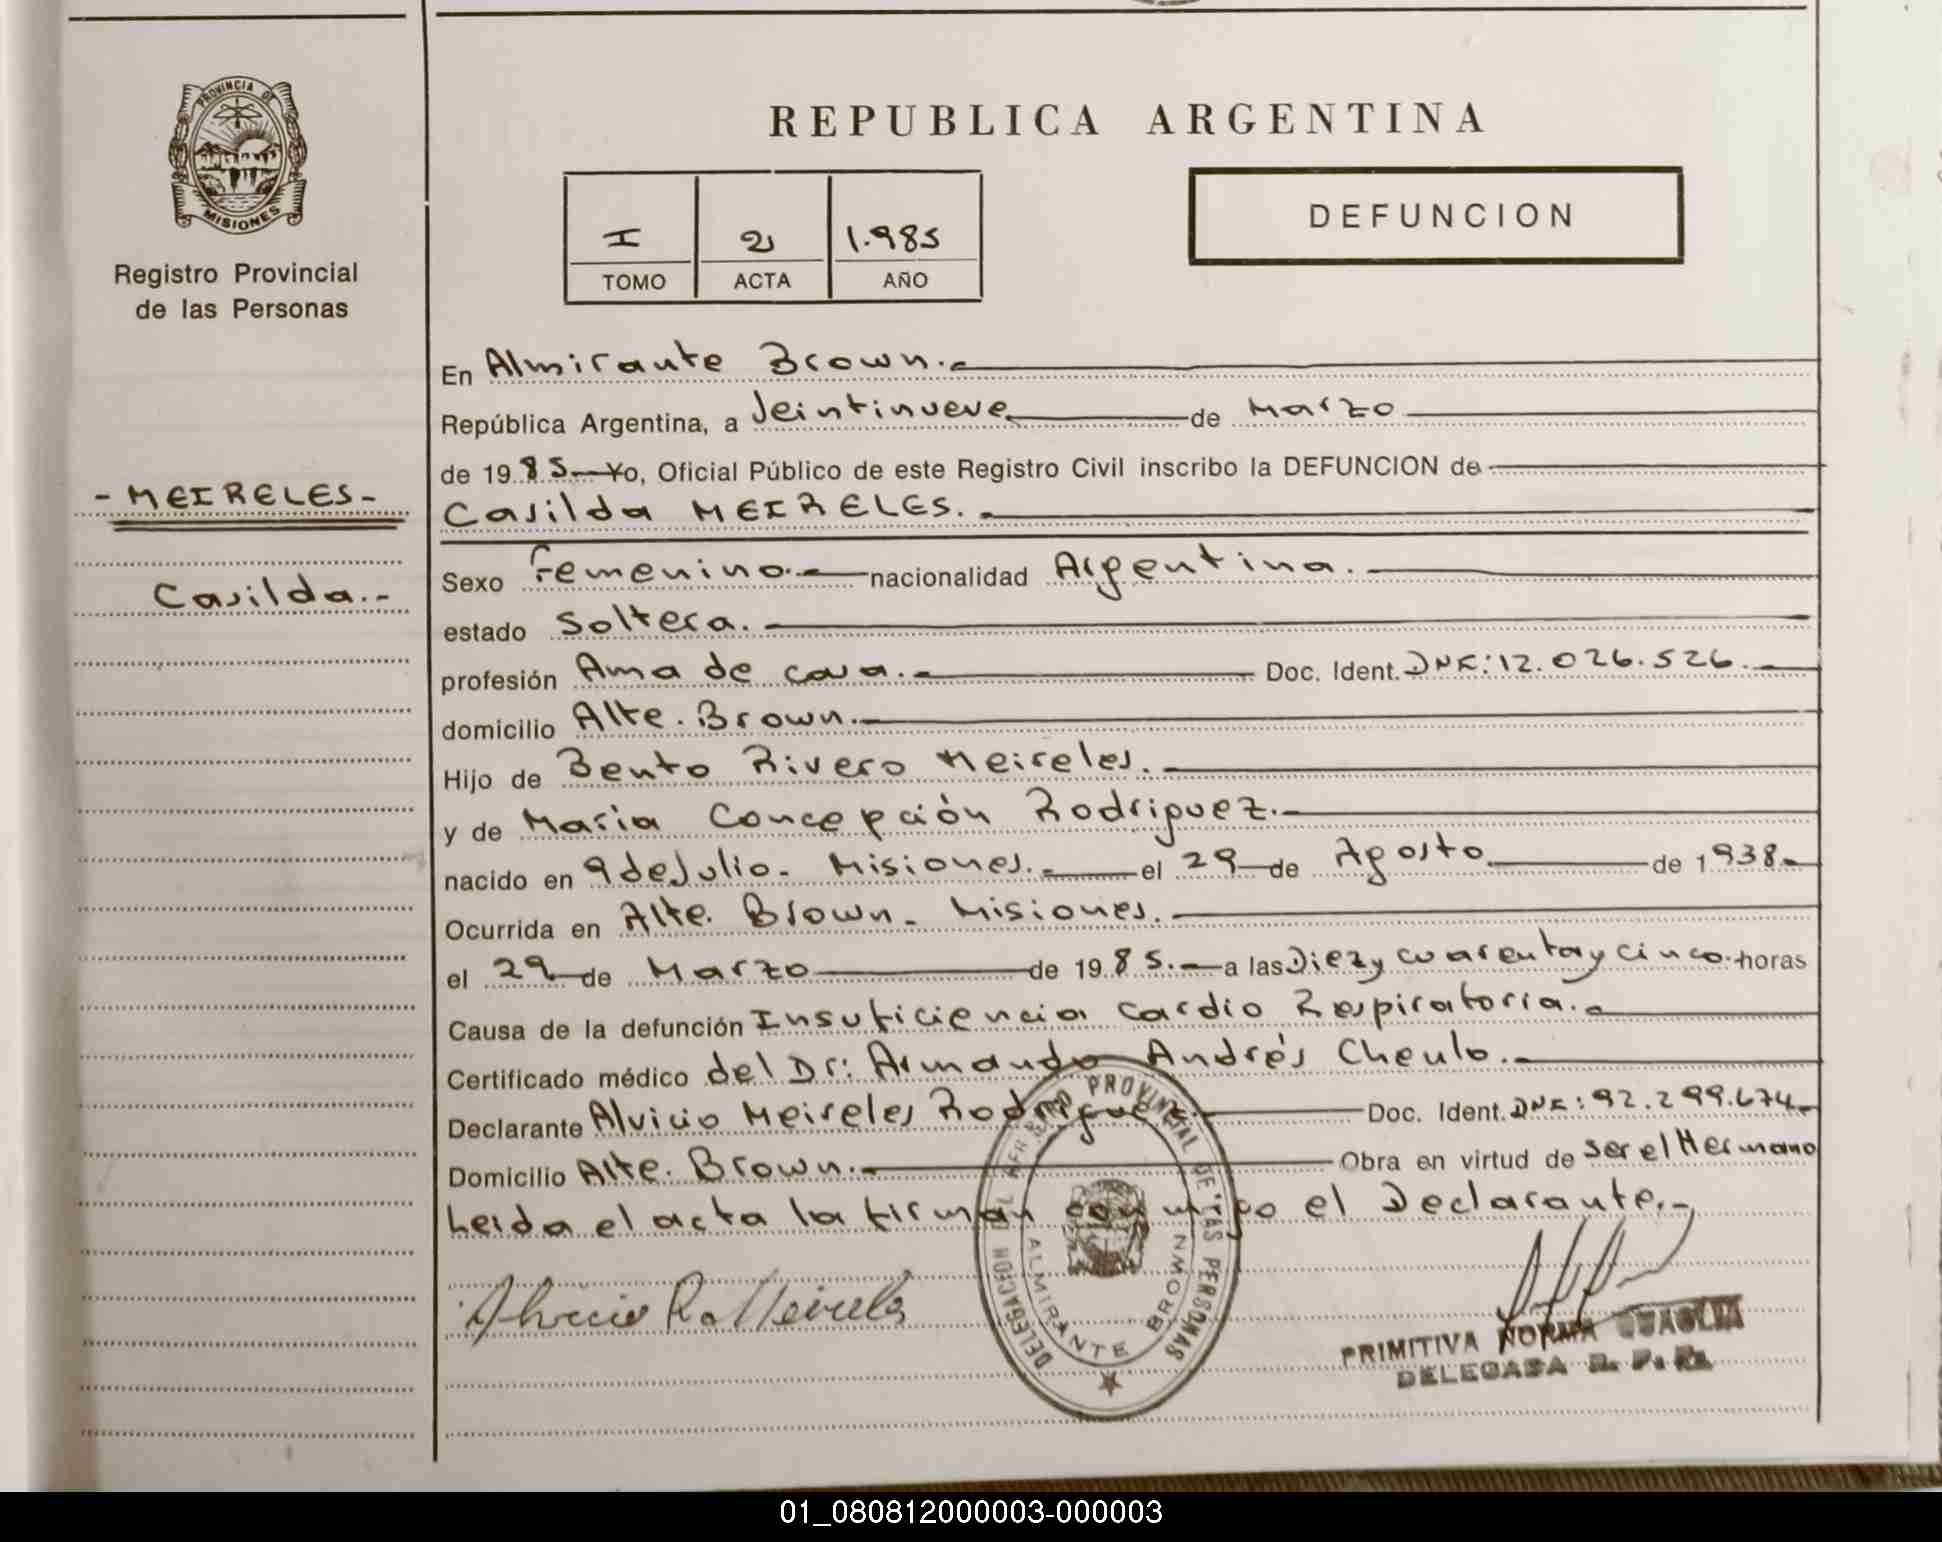 PROVINCIA DE
MISIONES
Registro Provincial
de las Personas
- MEIRELES-
Casilda.-
REPUBLICA ARGENTINA
I 2 1.985
TOMO ACTA AÑO
DEFUNCION
En Almirante Brown.-
República Argentina, a Veintinueve de Marzo
de 1985.- Yo, Oficial Público de este Registro Civil inscribo la DEFUNCION de
Casilda MEIRELES.-
Sexo Femenino.- nacionalidad Argentina.-
estado Soltera.-
profesión Ama de casa.- Doc. Ident. DNI: 12.026.526.-
domicilio Alte. Brown.-
Hijo de Bento Rivero Meireles.-
y de Maria Concepción Rodriguez.-
nacido en 9 de Julio - Misiones.- el 29 de Agosto de 1938.-
Ocurrida en Alte. Brown - Misiones.-
el 29 de Marzo de 1985.- a las Diez y cuarenta y cinco. horas
Causa de la defunción Insuficiencia Cardio Respiratoria.-
Certificado médico del Dr: Armando Andrés Cheulo.-
Declarante Alvicio Meireles Rodriguez.- Doc. Ident. DNI: 92.299.674.-
Domicilio Alte. Brown.- Obra en virtud de ser el Hermano
Leida el acta la firman conmigo el Declarante.-
Alvicio R. Meireles
DELEGACION DEL REGISTRO PROVINCIAL DE LAS PERSONAS
ALMIRANTE BROWN
PRIMITIVA NORMA QUAGLIA
DELEGADA R. P. P.
01_080812000003-000003